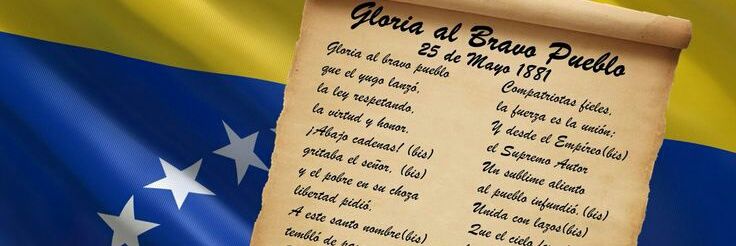 Gloria al Bravo Pueblo
25 de Mayo 1881
Gloria al bravo pueblo
que el yugo lanzó,
la ley respetando,
la virtud y honor.
¡Abajo cadenas! (bis)
gritaba el señor, (bis)
y el pobre en su choza
libertad pidió.
A este santo nombre(bis)
tembló de
Compatriotas fieles,
la fuerza es la unión;
Y desde el Empíreo(bis)
el Supremo Autor
Un sublime aliento
al pueblo infundió.(bis)
Unida con lazos(bis)
Que el cielo